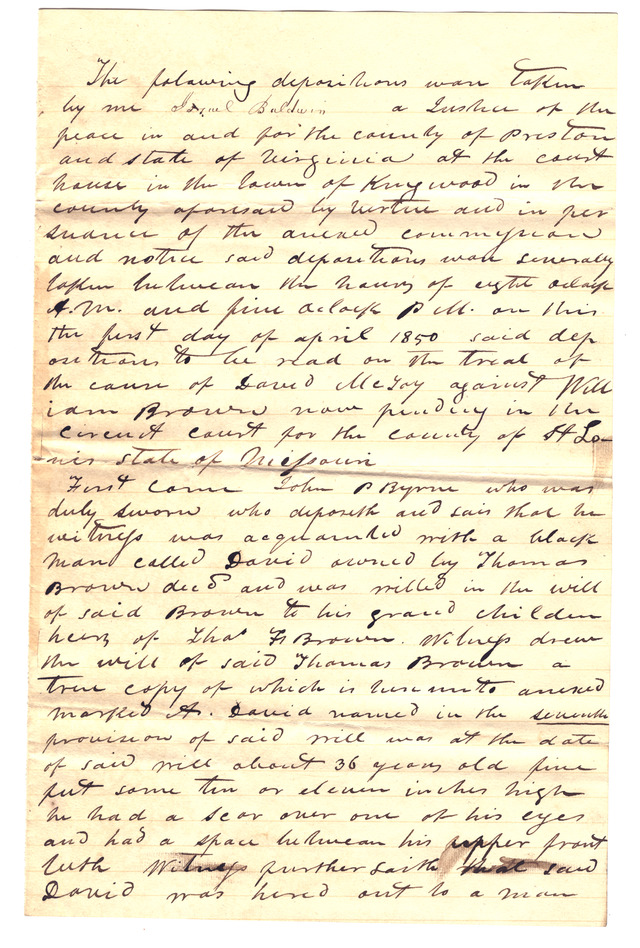 The folawing depositions ware taken
by me Israel Baldwin a Justice of the
peace in and for the county of Preston
and state of Virginia at the court
house in the town of Kingwood in the
county aforesaid by vertue and in per
suance of the anexed commission
and notice said depositions ware severally
taken between the hours of eight oclock
A.M. and five oclock P.M. on this
the first day of april 1850 said dep
ositions to be read on the trial of
the cause of David McFoy against Will
iam Brown now pending in the
circuit court for the county of St Lo-
uis state of Missouri
First came John P Byrne who was
duly sworn who deposeth and sais that he
witness was acquainted with a black
man called David owned by Thomas
Brown decd and was willed in the will
of said Brown to his grand children
heirs of Thos F Brown. Witness drew
the will of said Thomas Brown a
true copy of which is hereunto anexed
marked A. David named in the seventh
provision of said will was at the date
of said will about 36 years old five
fut some ten or eleven inches high
he had a scar over one of his eyes
and had a space between his upper front
teeth Witness further saith that said
David was hered out to a man